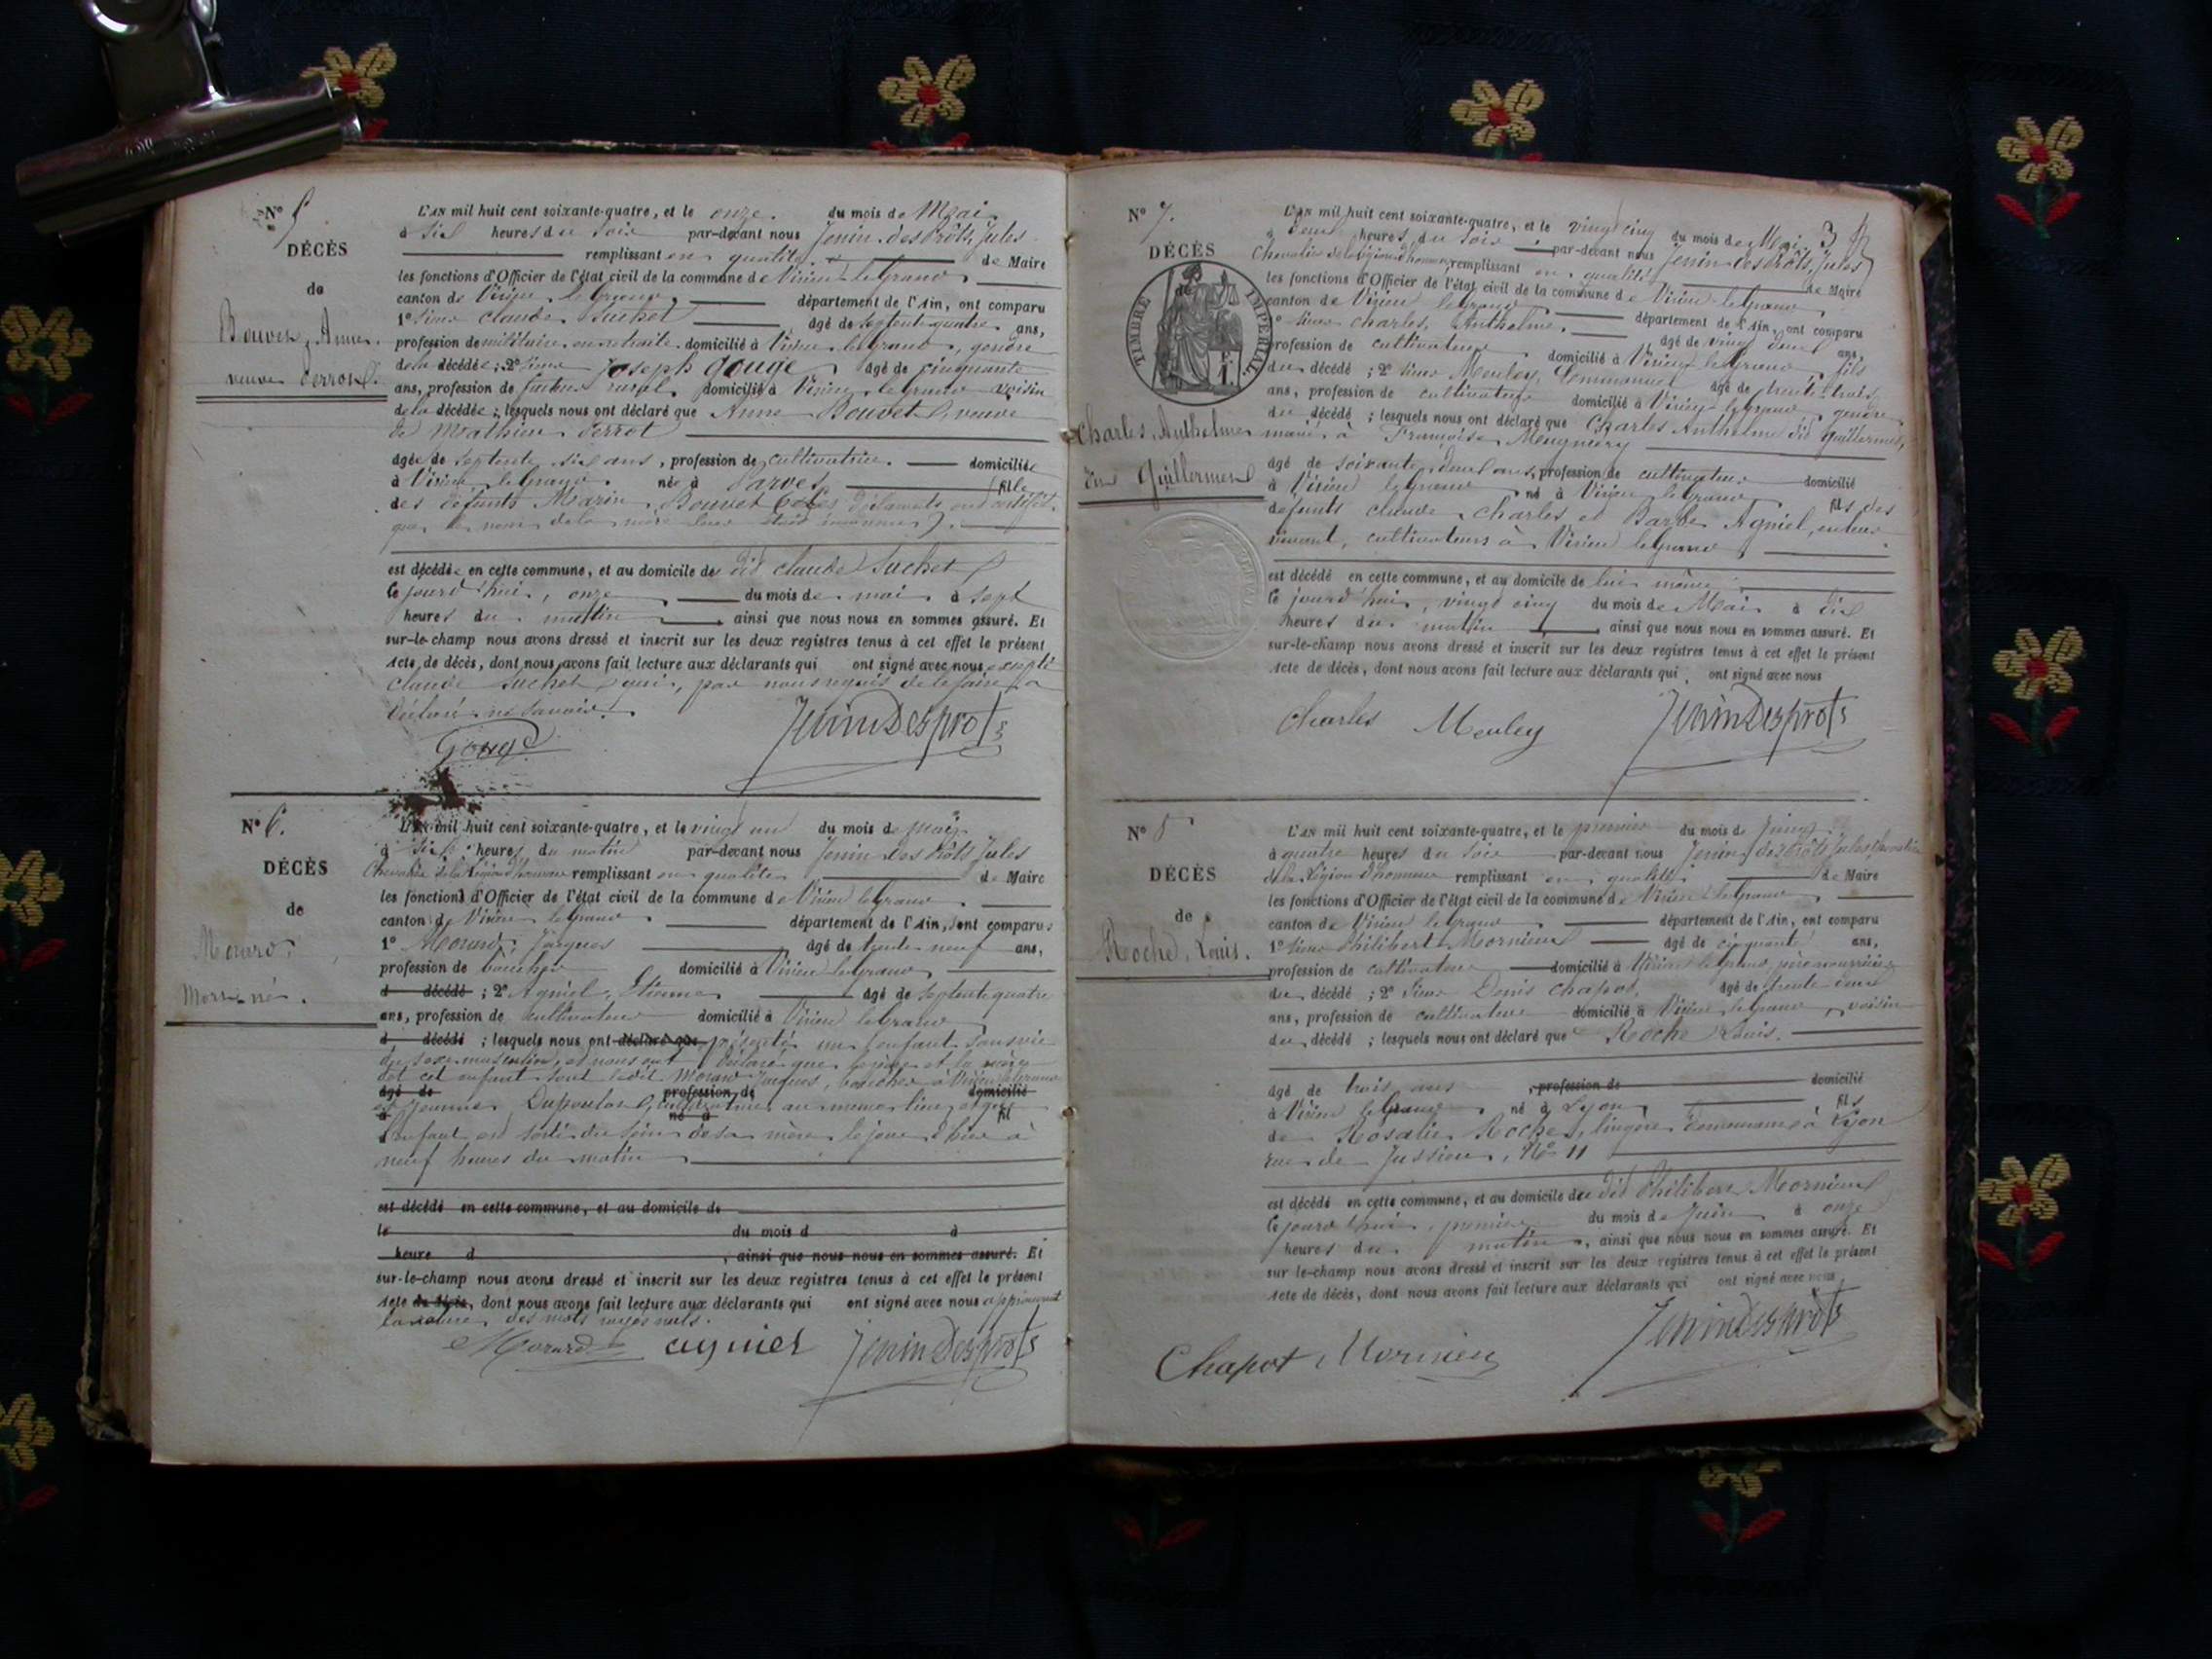 N° 5
DÉCÈS
de
Bouvet, Anne,
veuve Perrot.
L'AN mil huit cent soixante-quatre, et le onze du mois de Mai
à six heures du soir par-devant nous Jenin-desPrôts, Jules
remplissant en qualité de Maire
les fonctions d'Officier de l'état civil de la commune de Virieu-le-grand
canton de Virieu le grand, département de l'Ain, ont comparu
1° Sieur Claude Suchet âgé de septente quatre ans,
profession de militaire en retraite domicilié à Virieu le grand, gendre
de la décédée ; 2° Sieur Joseph Gouge âgé de cinquante
ans, profession de rural domicilié à Virieu le grand voisin
de la décédée ; lesquels nous ont déclaré que Anne Bouvet, veuve
de Mathieu Perrot
âgée de septente six ans, profession de cultivatrice domiciliée
à Virieu le grand née à Parves fille
des défunts Marin Bouvet
que le nom de la mère leur était inconnu).
est décédée en cette commune, et au domicile de dit Claude Suchet
le jourd'hui, onze du mois de mai à sept
heures du matin ainsi que nous nous en sommes assuré. Et
sur-le-champ nous avons dressé et inscrit sur les deux registres tenus à cet effet le présent
Acte de décès, dont nous avons fait lecture aux déclarants qui ont signé avec nous excepté
Claude Suchet qui, par nous requis de le faire a
déclaré ne savoir.
Gouge JeninDesprots
N° 6.
DÉCÈS
de
Morard,
Mort-né.
L'AN mil huit cent soixante-quatre, et le vingt un du mois de Mai
à six heures du matin par-devant nous Jenin des Prôts Jules
Chevalier de la Légion d'honneur remplissant en qualité de Maire
les fonctions d'Officier de l'état civil de la commune de Virieu le grand
canton de Virieu le grand département de l'Ain, ont comparu
1° Morard, Jacques âgé de trente neuf ans,
profession de boucher domicilié à Virieu le grand
d décédé ; 2° Agniel, Etienne âgé de septente quatre
ans, profession de cultivateur domicilié à Virieu le grand
d décédé ; lesquels nous ont déclaré que présenté un enfant sans vie
du sexe masculin, et nous ont déclaré que le père et la mère
dot cet enfant sont ledit Morard Jacques, boucher à Virieu le grand
âgé de profession de domicilié
et Jeanne au même lieu, et que
à né à fil
l'enfant est sorti du sein de sa mère le jour d'hier à
neuf heures du matin
est décédé en cette commune, et au domicile de
le du mois d à
heure d , ainsi que nous nous en sommes assuré. Et
sur-le-champ nous avons dressé et inscrit sur les deux registres tenus à cet effet le présent
Acte de décès, dont nous avons fait lecture aux déclarants qui ont signé avec nous approuvant
la rature des mots rayés nuls.
Morard agniel JeninDesprots
N° 7.
DÉCÈS
de
TIMBRE IMPERIAL
Charles, Anthelme
dit Guillermet
L'AN mil huit cent soixante-quatre, et le vingt cinq du mois de Mai 3
à deux heures du soir par-devant nous Jenin desPrôts, Jules
Chevalier de la Légion d'honneur, remplissant en qualité de Maire
les fonctions d'Officier de l'état civil de la commune de Virieu-le-grand
canton de Virieu le grand département de l'Ain, ont comparu
1° Sieur Charles, Anthelme âgé de vingt deux ans,
profession de cultivateur domicilié à Virieu le grand, fils
du décédé ; 2° Sieur Meuley, Emmanuel âgé de trente-trois
ans, profession de cultivateur domicilié à Virieu-le-grand, gendre
du décédé ; lesquels nous ont déclaré que Charles Anthelme dit Guillermet,
marié à Françoise
âgé de soixante deux ans, profession de cultivateur domicilié
à Virieu le grand né à Virieu le grand fils des
défunts Claude Charles et Barbe Agniel, en leur
vivant, cultivateurs à Virieu le grand
est décédé en cette commune, et au domicile de lui même
le jourd'hui, vingt cinq du mois de Mai à dix
heures du matin ainsi que nous nous en sommes assuré. Et
sur-le-champ nous avons dressé et inscrit sur les deux registres tenus à cet effet le présent
Acte de décès, dont nous avons fait lecture aux déclarants qui ont signé avec nous
Charles Meuley JeninDesprots
N° 8
DÉCÈS
de
Roche, Louis.
L'AN mil huit cent soixante-quatre, et le premier du mois de Juin
à quatre heures du soir par-devant nous Jenin-desPrôts Jules Chevalier
de la Légion d'honneur remplissant en qualité de Maire
les fonctions d'Officier de l'état civil de la commune de Virieu le grand
canton de Virieu le grand département de l'Ain, ont comparu
1° Sieur Philibert Mornieux âgé de cinquante ans,
profession de cultivateur domicilié à Virieu le grand père nourricier
du décédé ; 2° Sieur Denis Chapot, âgé de trente
ans, profession de cultivateur domicilié à Virieu le grand, voisin
du décédé ; lesquels nous ont déclaré que Roche Louis.
âgé de trois ans , profession de domicilié
à Virieu le grand né à Lyon fils
de Rosalie Roche, lingère demeurant à Lyon
rue de Jussieu, N° 11
est décédé en cette commune, et au domicile du dit Philibert Mornieux
le jourd'hui, premier du mois de Juin à onze
heures du matin, ainsi que nous nous en sommes assuré. Et
sur-le-champ nous avons dressé et inscrit sur les deux registres tenus à cet effet le présent
Acte de décès, dont nous avons fait lecture aux déclarants qui ont signé avec nous
Chapot Mornieu JeninDesprots